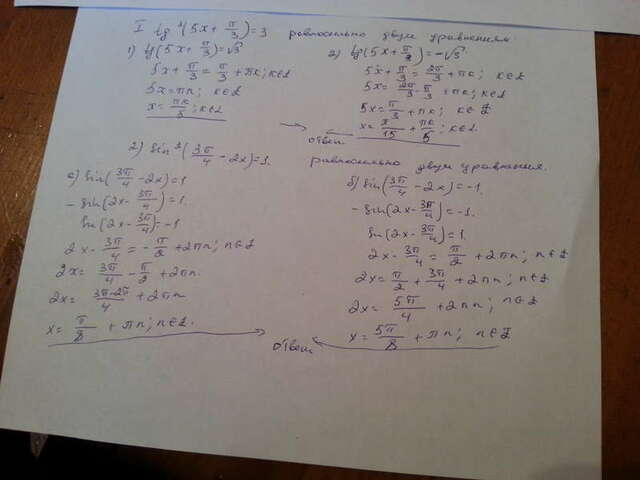 I tg²(5x + π/3) = 3 равносильно двум уравнениям
1) tg(5x + π/3) = √3
5x + π/3 = π/3 + πk; k∈Z
5x = πk; k∈Z
x = πk/5; k∈Z
2) tg(5x + π/3) = -√3
5x + π/3 = 2π/3 + πk; k∈Z
5x = 2π/3 - π/3 + πk; k∈Z
5x = π/3 + πk; k∈Z
x = π/15 + πk/5; k∈Z
ответ
2) sin²(3π/4 - 2x) = 1. равносильно двум уравнения.
а) sin(3π/4 - 2x) = 1
- sin(2x - 3π/4) = 1.
sin(2x - 3π/4) = -1
2x - 3π/4 = -π/2 + 2πn; n∈Z
2x = 3π/4 - π/2 + 2πn.
2x = 3π-2π/4 + 2πn
x = π/8 + πn; n∈Z.
б) sin(3π/4 - 2x) = -1.
- sin(2x - 3π/4) = -1.
sin(2x - 3π/4) = 1.
2x - 3π/4 = π/2 + 2πn; n∈Z
2x = π/2 + 3π/4 + 2πn; n∈Z
2x = 5π/4 + 2πn; n∈Z
x = 5π/8 + πn; n∈Z
ответ